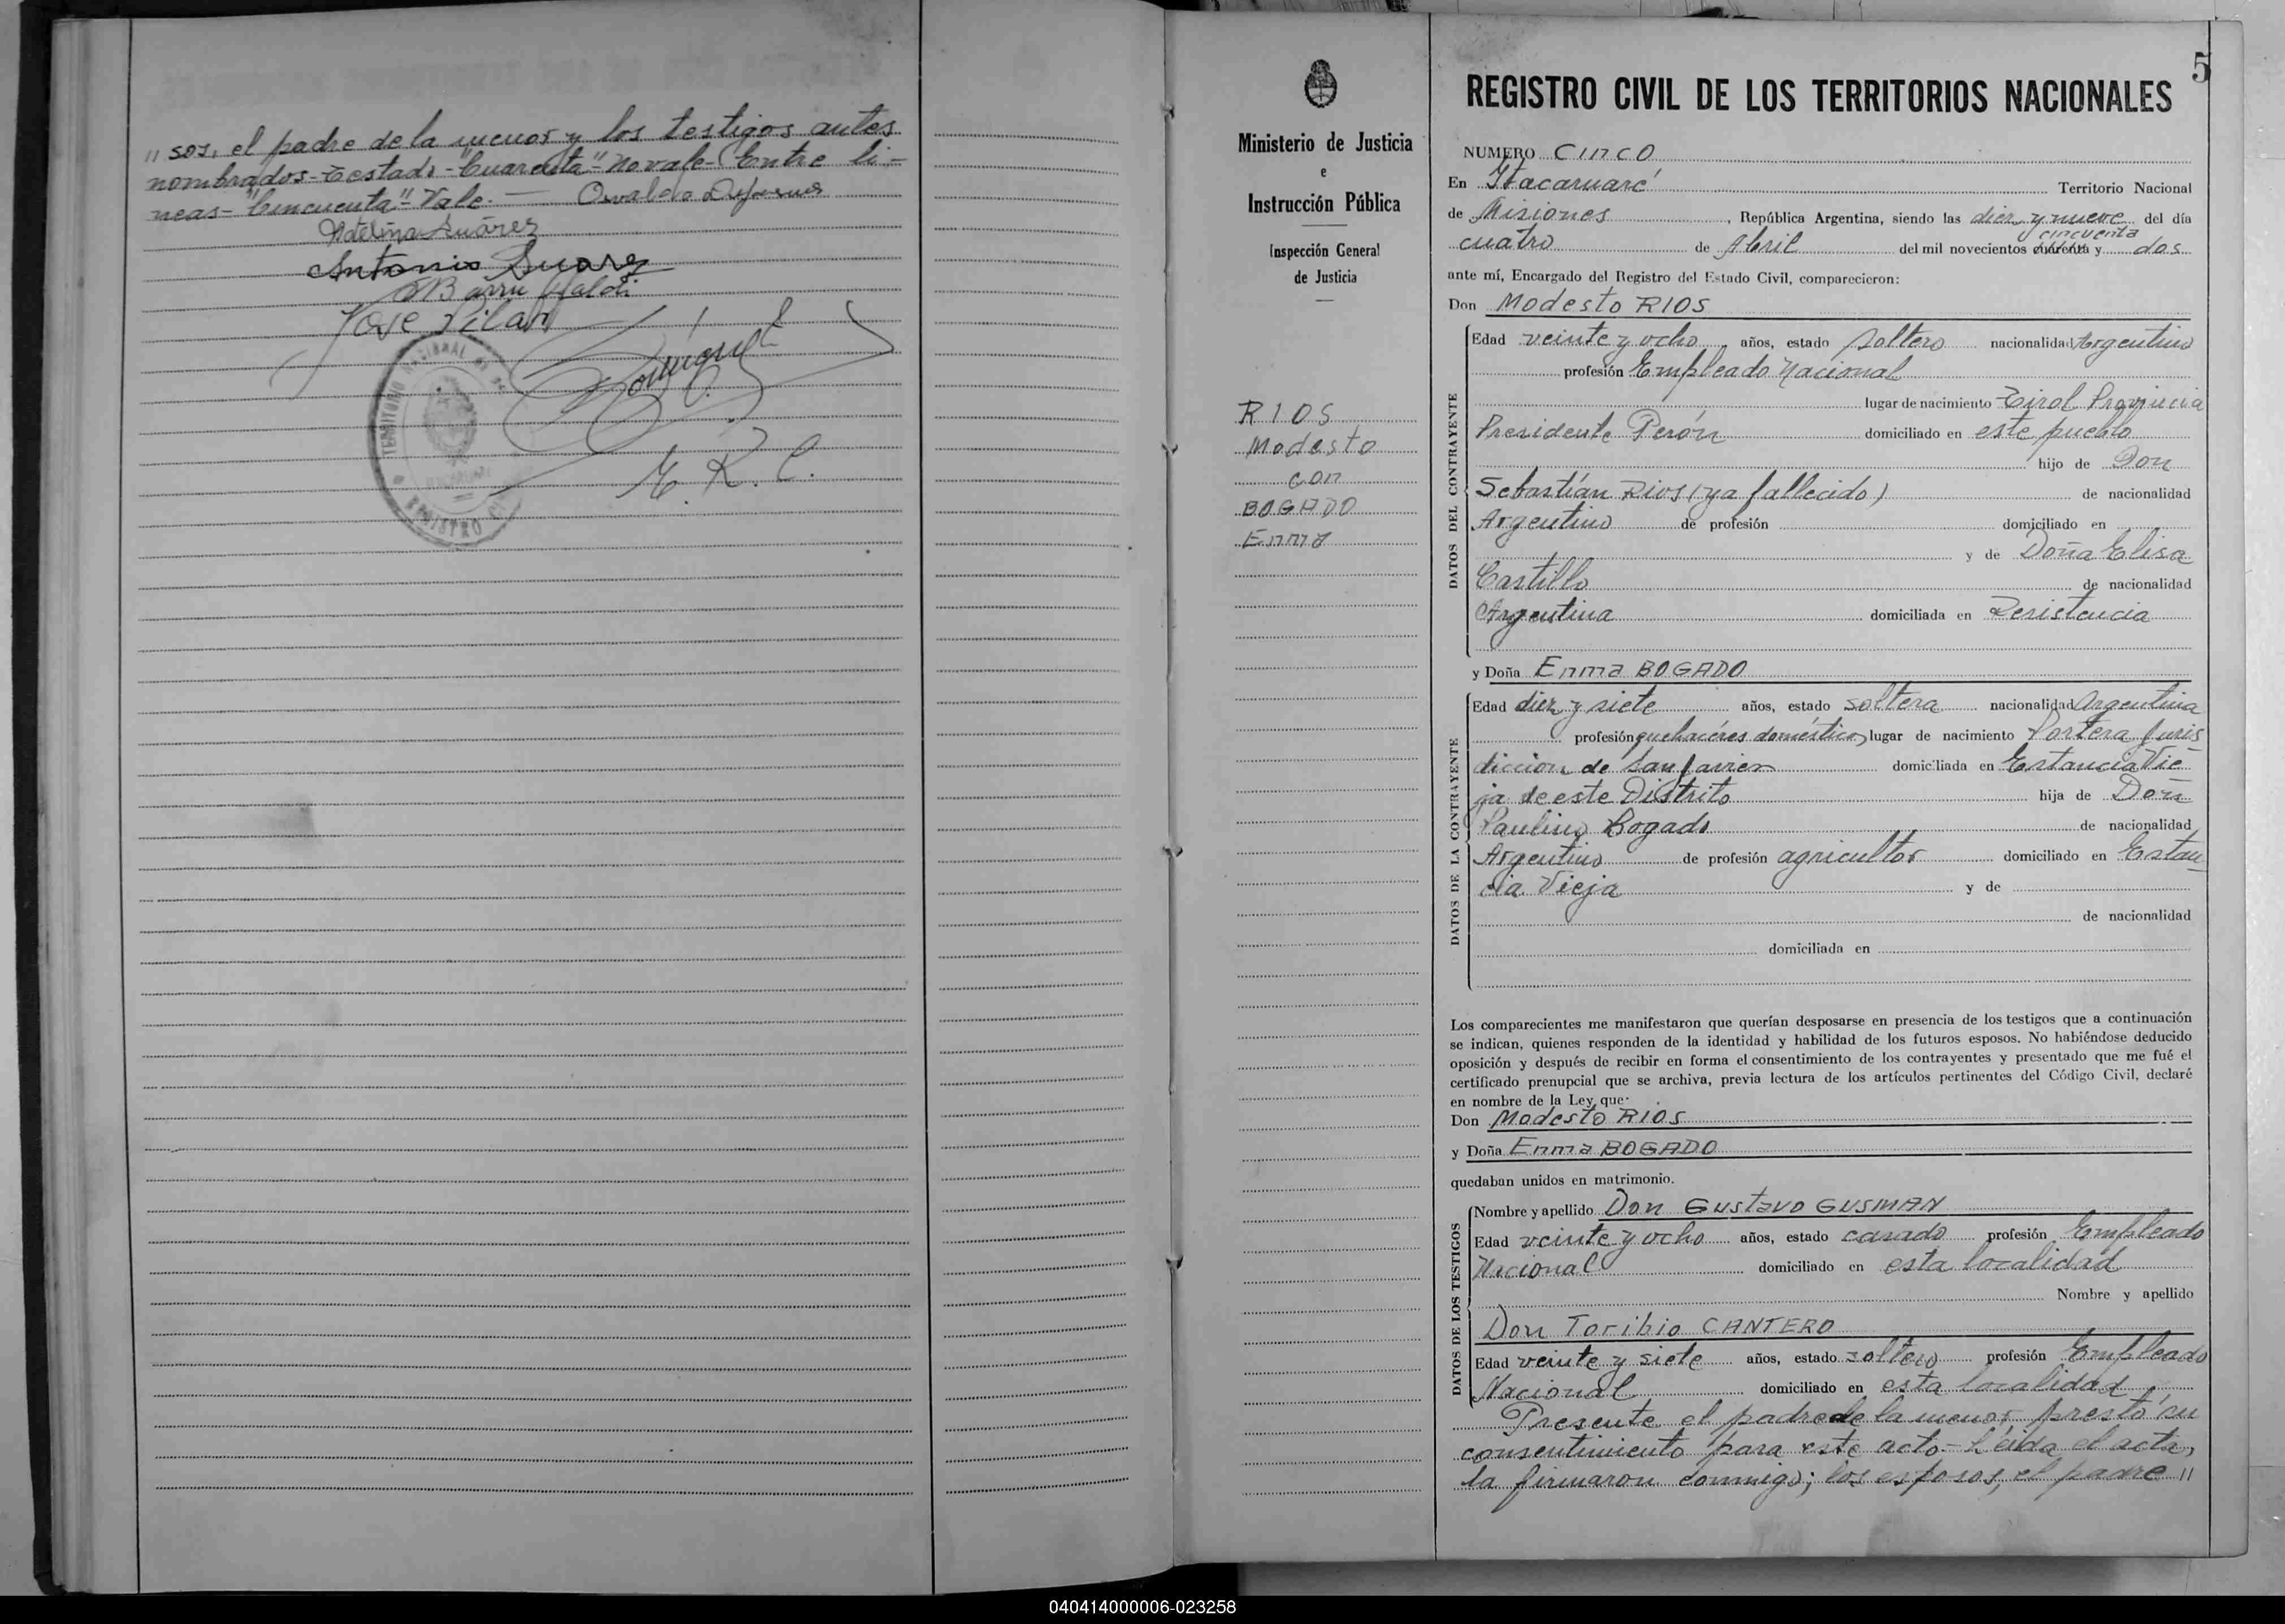 " sos, el padre de la menor y los testigos antes
nombrados- Testado- "Cuarenta"- no vale- Entre lí-
neas- "Cincuenta"- Vale.- Osvaldo
Adelina Suárez
Antonio Suarez
José Vilar
E. R. C.
TERRITORIO NACIONAL
REGISTRO
Ministerio de Justicia
e
Instrucción Pública
Inspección General
de Justicia
RIOS
Modesto
con
BOGADO
Enma
5
REGISTRO CIVIL DE LOS TERRITORIOS NACIONALES
NUMERO CINCO
En Itacaruaré Territorio Nacional
de Misiones, República Argentina, siendo las diez y nueve del día
cincuenta
cuatro de Abril del mil novecientos cuarenta y dos
ante mí, Encargado del Registro del Estado Civil, comparecieron:
Don Modesto RIOS
DATOS DEL CONTRAYENTE
Edad veinte y ocho, años, estado soltero nacionalidad Argentino
profesión Empleado Nacional
lugar de nacimiento Tirol Provincia
Presidente Perón domiciliado en este pueblo
hijo de Don
Sebastián Rios (ya fallecido) de nacionalidad
Argentino de profesión domiciliado en
y de Doña Elisa
Castillo de nacionalidad
Argentina domiciliada en Resistencia
y Doña Enma BOGADO
DATOS DE LA CONTRAYENTE
Edad diez y siete años, estado soltera nacionalidad Argentina
profesión quehacéres doméstico, lugar de nacimiento Portera Juris
diccion de San Javier domiciliada en Estancia Vie
ja de este Distrito hija de Don
Paulino Bogado de nacionalidad
Argentino de profesión agricultor domiciliado en Estan
cia Vieja y de
de nacionalidad
domiciliada en
Los comparecientes me manifestaron que querían desposarse en presencia de los testigos que a continuación
se indican, quienes responden de la identidad y habilidad de los futuros esposos. No habiéndose deducido
oposición y después de recibir en forma el consentimiento de los contrayentes y presentado que me fué el
certificado prenupcial que se archiva, previa lectura de los artículos pertinentes del Código Civil, declaré
en nombre de la Ley que:
Don Modesto RIOS
y Doña Enma BOGADO
quedaban unidos en matrimonio.
DATOS DE LOS TESTIGOS
Nombre y apellido Don Gustavo GUSMAN
Edad veinte y ocho años, estado casado profesión Empleado
Nacional domiciliado en esta localidad
Nombre y apellido
Don Toribio CANTERO
Edad veinte y siete años, estado soltero profesión Empleado
Nacional domiciliado en esta localidad
Presente el padre de la menor prestó su
consentimiento para este acto- Leída el acta,
la firmaron conmigo; los esposos, el padre "
040414000006-023258